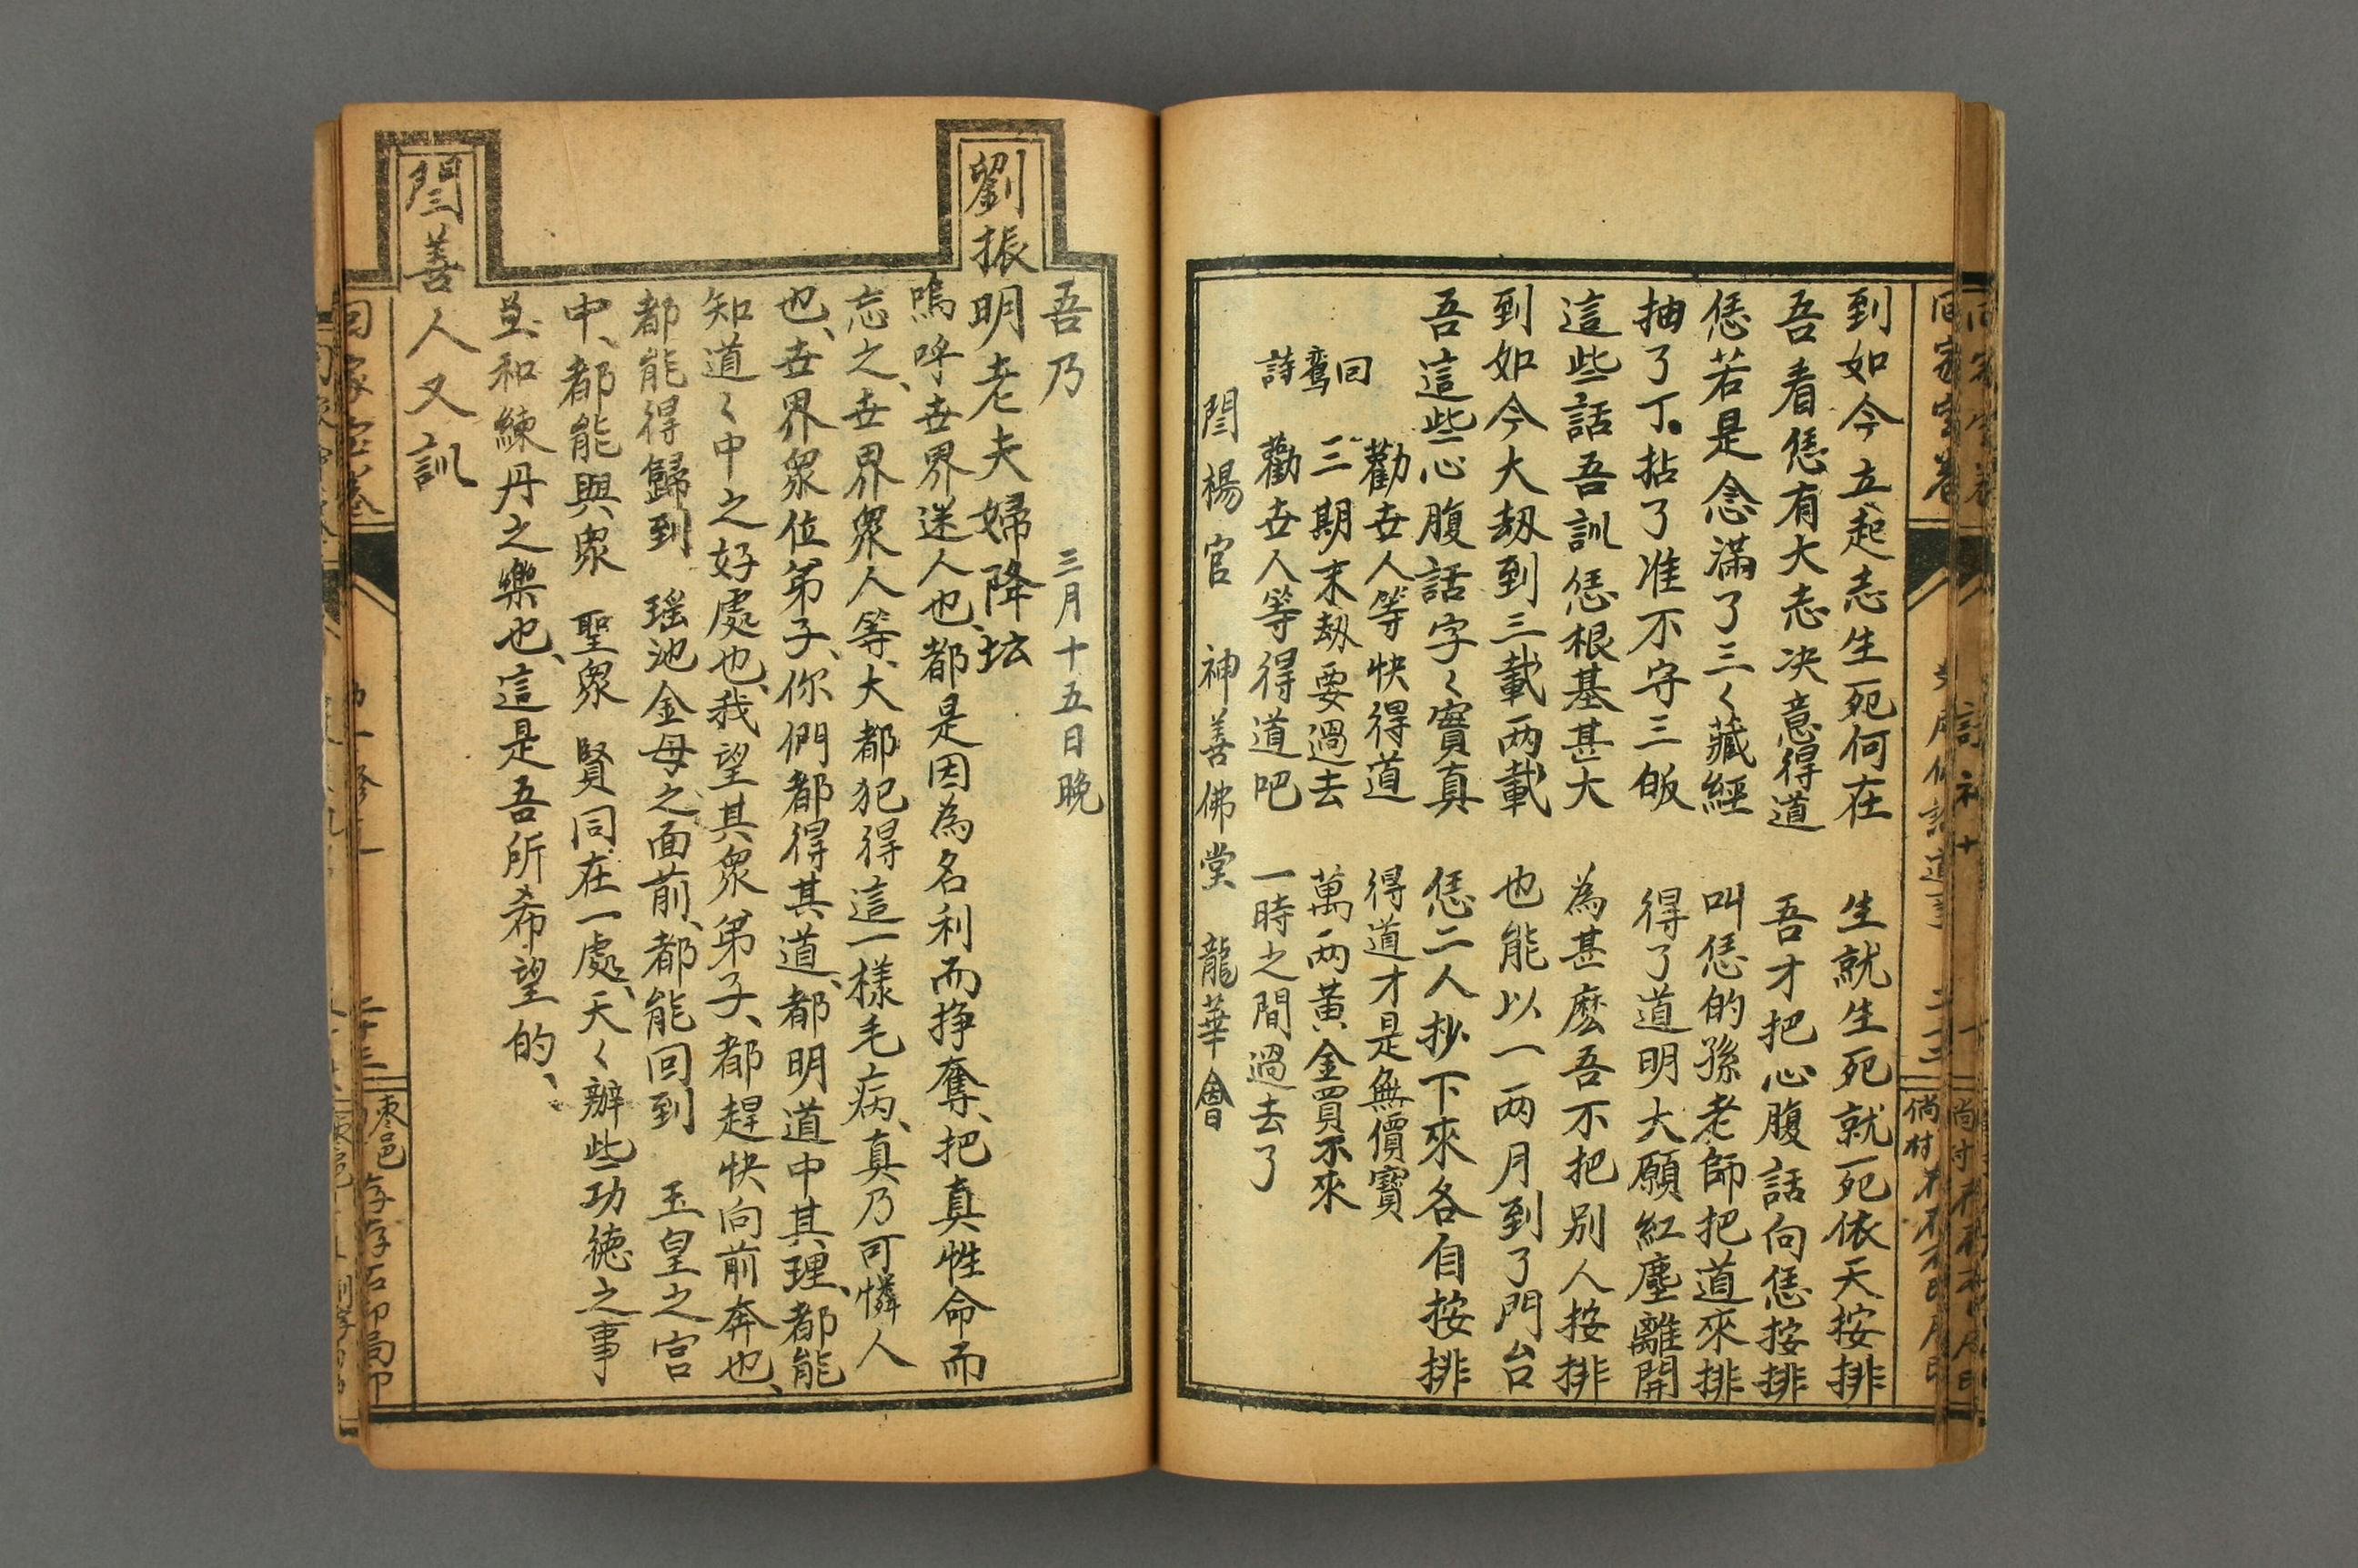 到如今立起志生死何在 生就生死就死依天按排
吾看恁有大志决意得道 吾才把心腹話向恁按排
恁若是念滿了三く藏經 叫恁的孫老師把道來排
抽了丁拈了准不守三皈 得了道明大願紅塵離開
這些話吾訓恁根基甚大 為甚麽吾不把别人按排
到如今大刼到三載两載 也能以一两月到了門台
吾這些心腹話字く實真 恁二人抄下來各自按排
回鸾詩
勸世人等快得道 得道才是無價寶
三期末刼要過去 萬两黃金買不來
勸世人等得道吧 一時之間過去了
閆楊官 神善佛堂 龍華會
吾乃 三月十五日晚
劉振明老夫婦降坛
嗚呼世界迷人也、都是因為名利而掙奪、把真性命而
忘之、世界衆人等、大都犯得這一樣毛病、真乃可憐人
也、世界衆位弟子、你們都得其道、都明道中其理、都能
知道く中之好處也、我望其衆弟子、都趕快向前奔也、
都能得歸到 瑶池金母之面前、都能回到 玉皇之宫
中、都能與衆 聖衆 賢同在一處、天く辦些功徳之事
並和練丹之樂也、這是吾所希望的、
閆善人又訓
回家宝卷
棗邑